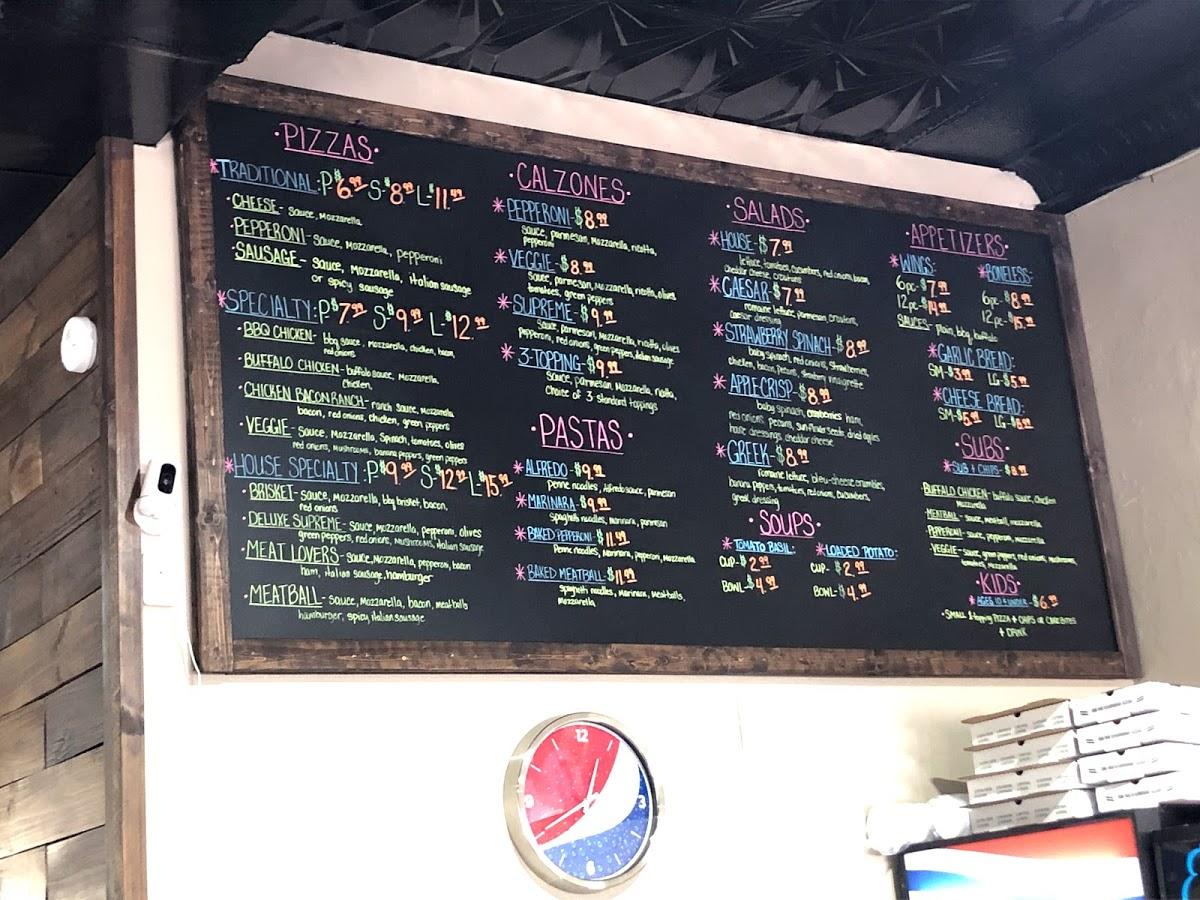 ·PIZZAS·
*TRADITIONAL: P-$6.99 S-$8.99 L-$11.99
·CHEESE- Sauce, Mozzarella
·PEPPERONI- Sauce, Mozzarella, pepperoni
·SAUSAGE- Sauce, Mozzarella, italian sausage
or spicy sausage
*SPECIALTY: P$7.99 S$9.99 L-$12.99
·BBQ CHICKEN- bbq sauce, Mozzarella, chicken, bacon,
red onions
·BUFFALO CHICKEN- buffalo sauce, Mozzarella,
chicken,
·CHICKEN BACON RANCH- ranch sauce, Mozzarella
bacon, red onions, chicken, green peppers
·VEGGIE- Sauce, Mozzarella, Spinach, tomatoes, olives
red onions, Mushrooms, banana peppers, green peppers
*HOUSE SPECIALTY: P$9.99 S$12.99 L$15.99
·BRISKET- sauce, Mozzarella, bbq brisket, bacon,
red onions
·DELUXE SUPREME- Sauce, Mozzarella, pepperoni, olives
green peppers, red onions, Mushrooms, italian sausage
·MEAT LOVERS- sauce, Mozzarella, pepperoni, bacon
ham, italian sausage, hamburger
·MEATBALL- sauce, Mozzarella, bacon, meatballs
hamburger, spicy, italian sausage
·CALZONES·
*PEPPERONI-$8.99
Sauce, parmesan, Mozzarella, ricotta,
pepperoni
*VEGGIE-$8.99
Sauce, parmeson, Mozzarella, ricotta, olives
tomatoes, green peppers
*SUPREME-$9.99
Sauce, parmesan, Mozzarella, ricotta, olives
pepperoni, red onions, green peppers, italian sausage
*3-TOPPING-$9.99
Sauce, parmesan, Mozzarella, ricotta,
choice of 3 standard toppings
·PASTAS·
*ALFREDO-$9.99
penne noodles, Alfredo sauce, parmesan
*MARINARA-$9.99
Spaghetti noodles, marinara, parmesan
*BAKED PEPPERONI-$11.99
Penne noodles, Marinara, pepperoni, Mozzarella
*BAKED MEATBALL-$11.99
spaghetti noodles, Marinara, Meatballs,
Mozzarella
·SALADS·
*HOUSE-$7.99
lettuce, tomatoes, cucumbers, red onions, bacon
cheddar cheese, croutons
*CAESAR-$7.99
romaine lettuce, parmesan, croutons,
caesar dressing
*STRAWBERRY SPINACH-$8.99
baby spinach, red onions, strawberries,
chicken, bacon, pecans, strawberry vinaigrette
*APPLE CRISP-$8.99
baby spinach, cranberries, ham,
red onions, pecans, sunflower seeds, dried apples
house dressings, cheddar cheese
*GREEK-$8.99
romaine lettuce, bleu-cheese crumbles,
banana peppers, tomatoes, red onion, cucumbers,
greek dressing
·SOUPS·
*TOMATO BASIL:
CUP-$2.99
BOWL-$4.99
*LOADED POTATO:
CUP-$2.99
BOWL-$4.99
·APPETIZERS·
*WINGS:
6pc-$7.99
12pc-$14.99
*BONELESS:
6pc-$8.99
12pc-$15.99
SAUCES- plain, bbq, buffalo
*GARLIC BREAD:
SM-$3.99 LG-$5.99
*CHEESE BREAD:
SM-$5.99 LG-$8.99
·SUBS·
*SUB + CHIPS-$8.99
BUFFALO CHICKEN- buffalo sauce, chicken
mozzarella
MEATBALL- Sauce, meatball, mozzarella
PEPPERONI- sauce, pepperoni, mozzarella
VEGGIE- Sauce, green peppers, red onions, mushrooms,
tomatoes, Mozzarella
·KIDS·
*AGES 10 & UNDER-$6.99
·SMALL 1 topping PIZZA + CHIPS or
+ DRINK
12
3
6
9